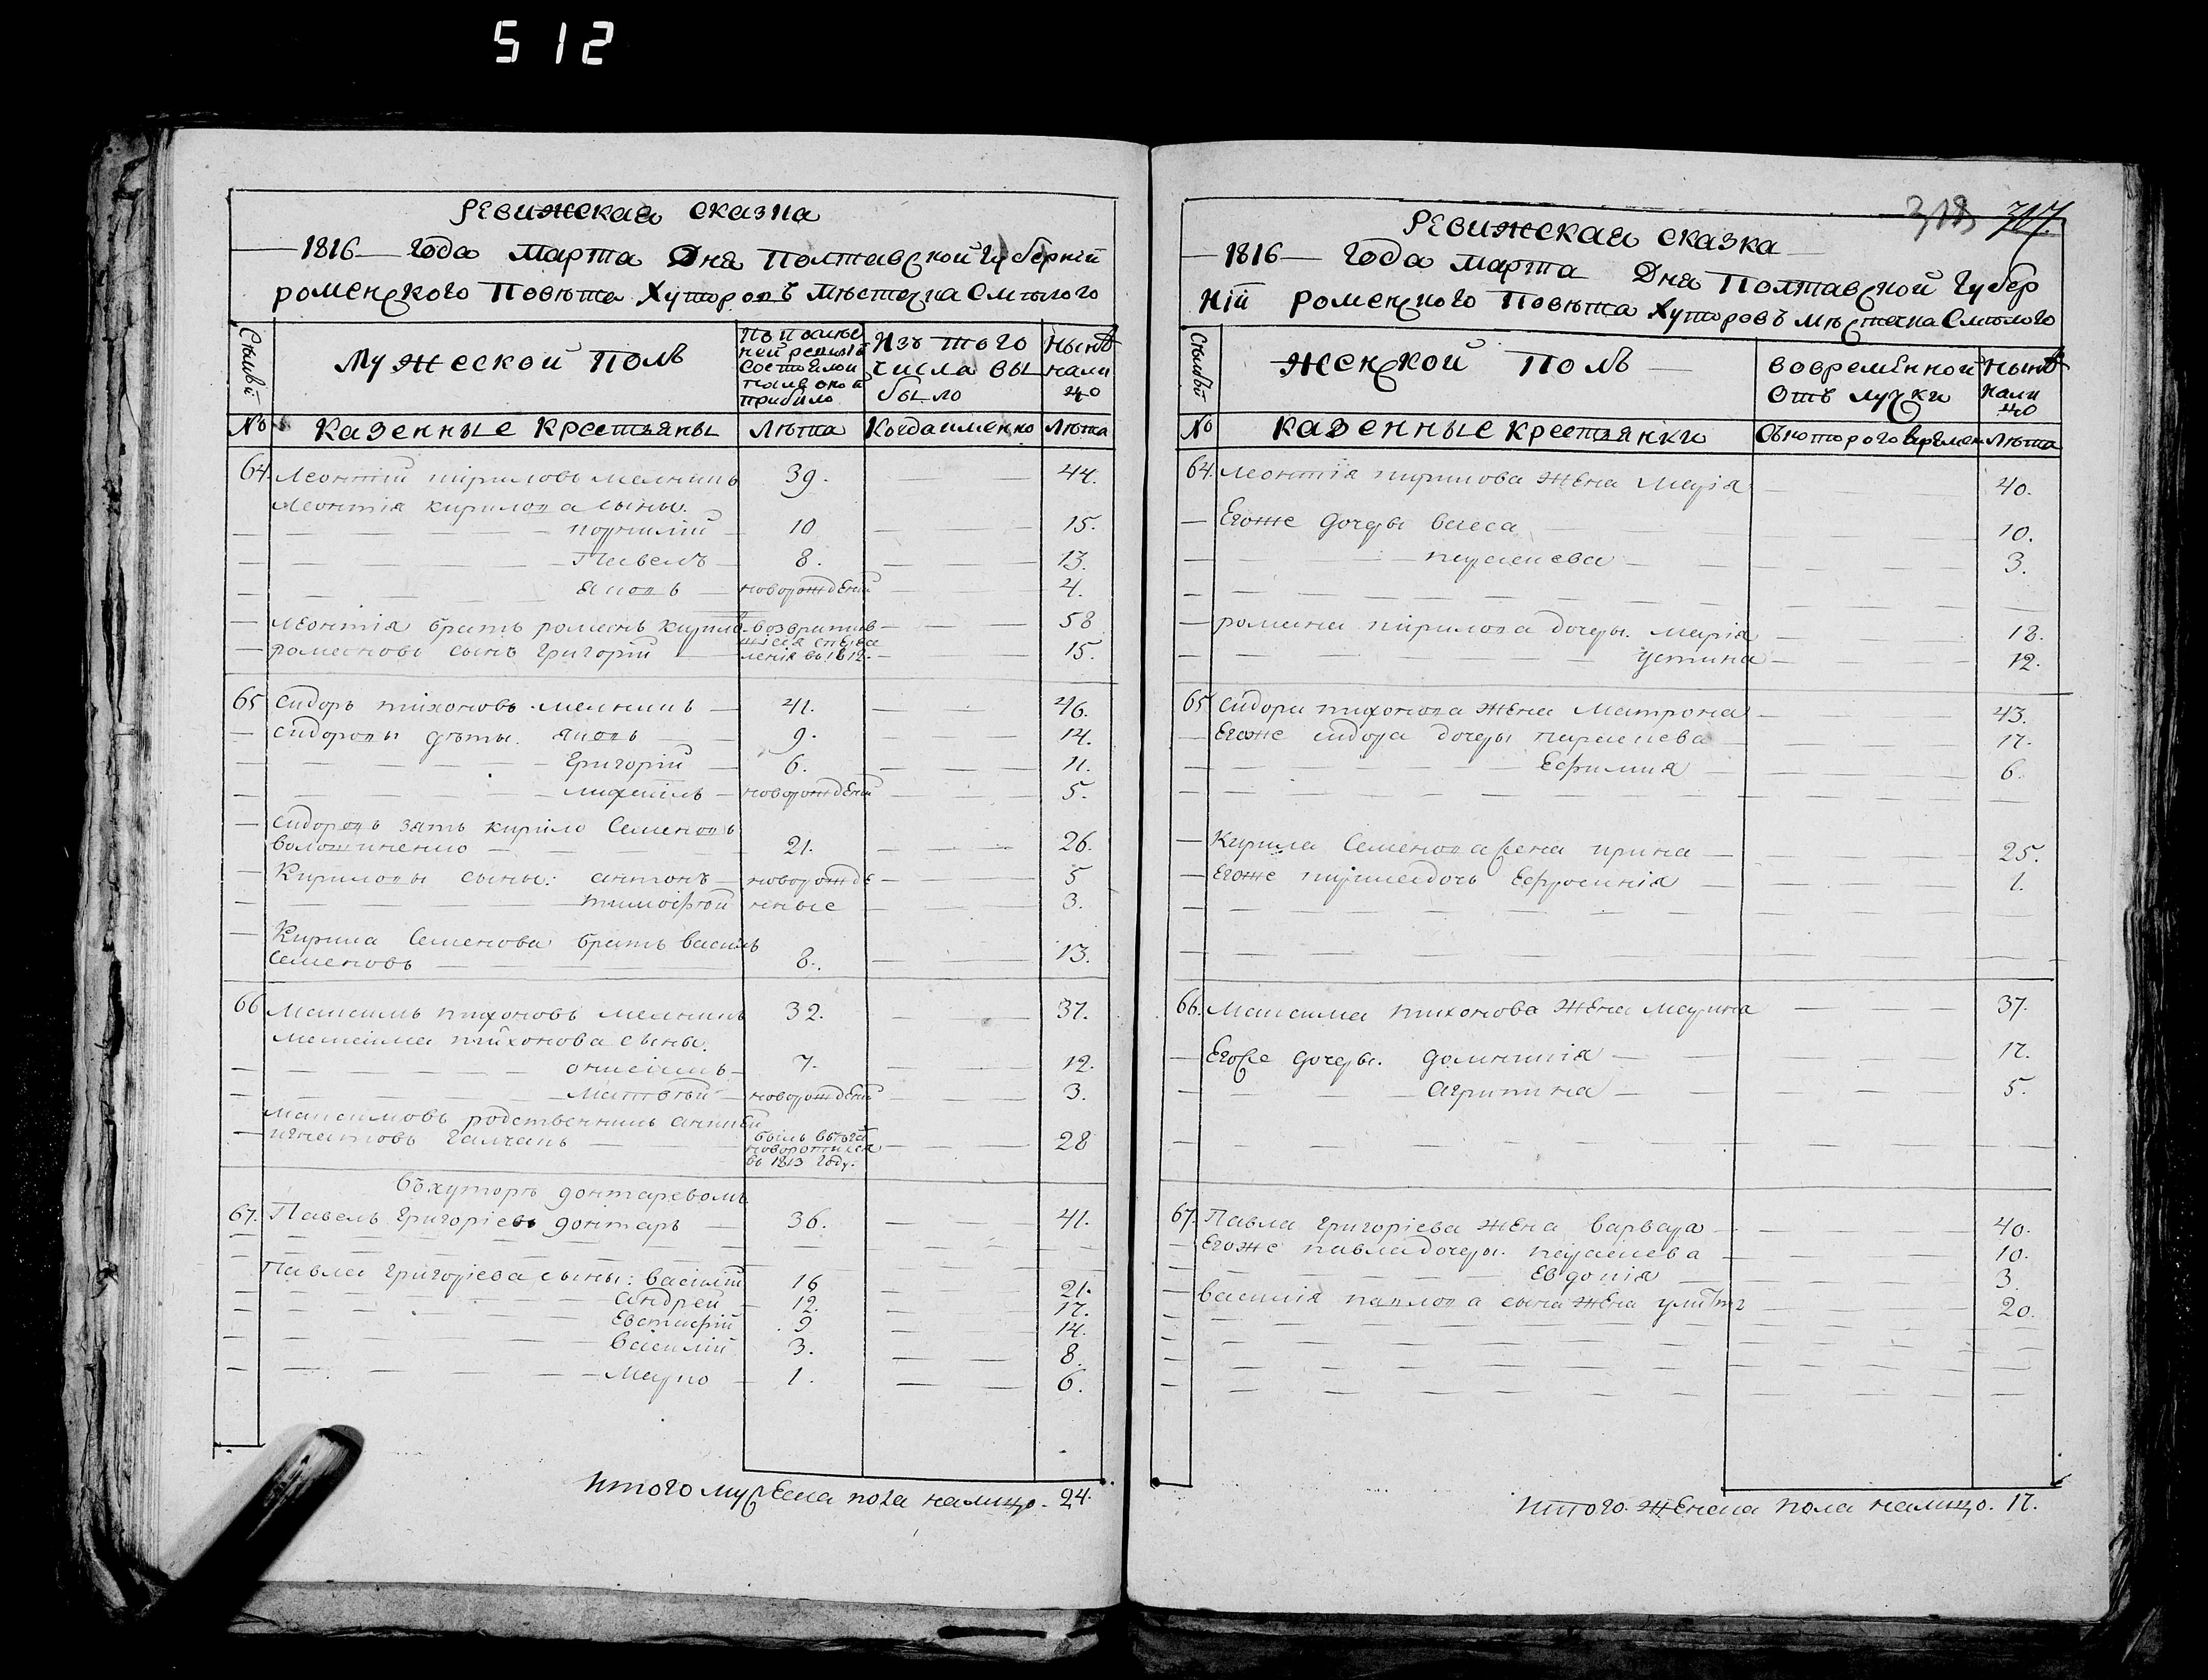 512
Ревижская сказка
1816 года Марта Дня Полтавской Губерніи
роменского Повѣта Хуторовъ Мѣстечка Смѣлого
Семьи
Мужеской Полъ
По послѣд
ней ревизіи
состояло и
послѣ оной
прибыло
Изъ того
числа вы
было
Нынѣ
нали
цо
№
Казенные Крестьяны
Лѣта
Когда именно
Лѣта
64. Леонтій кириловъ мелникъ 39. 44.
Леонтія кирилова сыны.
корнилій 10 15.
Павелъ 8. 13.
Яковъ новорожденій 4.
Леонтія братъ романъ кирило возвратив 58
шійся
романовъ сынъ Григорій въ 1812. 15.
65 Сидоръ тихоновъ мелникъ 41. 46.
Сидоровы дѣты. Яковъ 9. 14.
Григорій 6. 11.
михаилъ новорожденій 5.
Сидоровъ зять кирило Семеновъ
волошиненко 21. 26.
Кириловы сыны: антонъ новорожде 5
тимофѣй нные 3.
Кирила Семенова братъ василь
Семеновъ 8. 13.
66 Максимъ тихоновъ мелникъ 32. 37.
максима тихонова сыны.
7. 12.
Матвѣй новорожденій 3.
максимовъ родственникъ
игнатовъ галчанъ былъ 28
въ 1813 году.
въ хуторѣ донтаревомъ
67. Павелъ григоріевъ донтарь 36. 41.
Павла григоріева сыны: василій 16 21.
андрей 12. 17.
Евстафій 9 14.
василій 3. 8.
Марко 1. 6.
Итого мужеска пола налицо. 24.
318 317.
Ревижская сказка
1816 года Марта Дня Полтавской Губер
ніи роменского Повѣта Хуторовъ Мѣстечка Смѣлого
Семьи
Женской Полъ
во временной
отлучки
Нынѣ
нали
цо
№
Казенные крестьянки
Съ которого времен
Лѣта
64. Леонтія кирилова жена Марія 40.
Егоже дочеры васса 10.
параскева 3.
романа кирилова дочеры. марія 18.
устина 12.
65 Сидора тихонова жена Матрона 43.
Егоже сидора дочеры параскева 17.
Ефимия 6.
Кирила Семенова жена ирина 25.
Егоже кирила дочь Ефросинія 1.
66. Максима тихонова жена марина 37.
Егоже дочеры. домникія 17.
агрипина 5.
67. Павла григоріева жена варвара 40.
Егоже павла дочеры. параскева 10.
Евдокія 3.
василія павлова сына жена улита 20.
Итого. Женска пола налицо. 17.